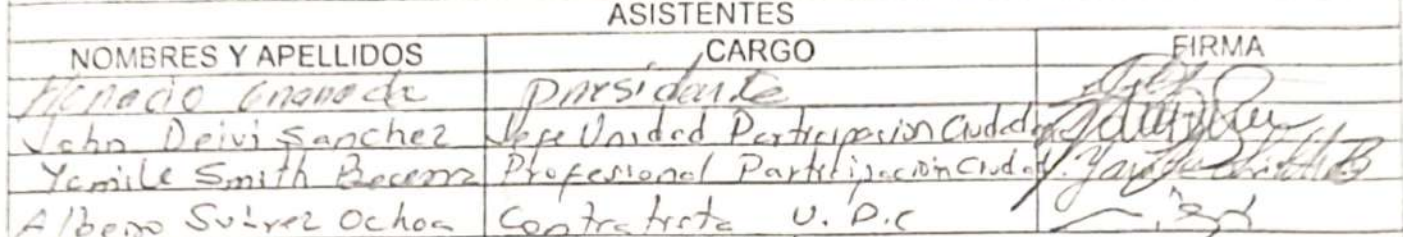 ASISTENTES
NOMBRES Y APELLIDOS CARGO FIRMA
Granada Presidente
John Deivi Sanchez Jefe Unidad Participacion Ciudad
Yamile Smith Becerra Profesional Participación Ciudad.
Suárez Ochoa Contratista U. P.C